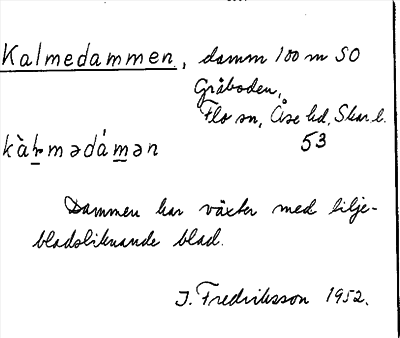 Kalmedammen, damm 100 m SO
Gråboden,
Flo sn, Åse hd, Skar.l.
53
kàḻmədámən
Dammen har växter med lilje-
bladsliknande blad.
J. Fredriksson 1952.